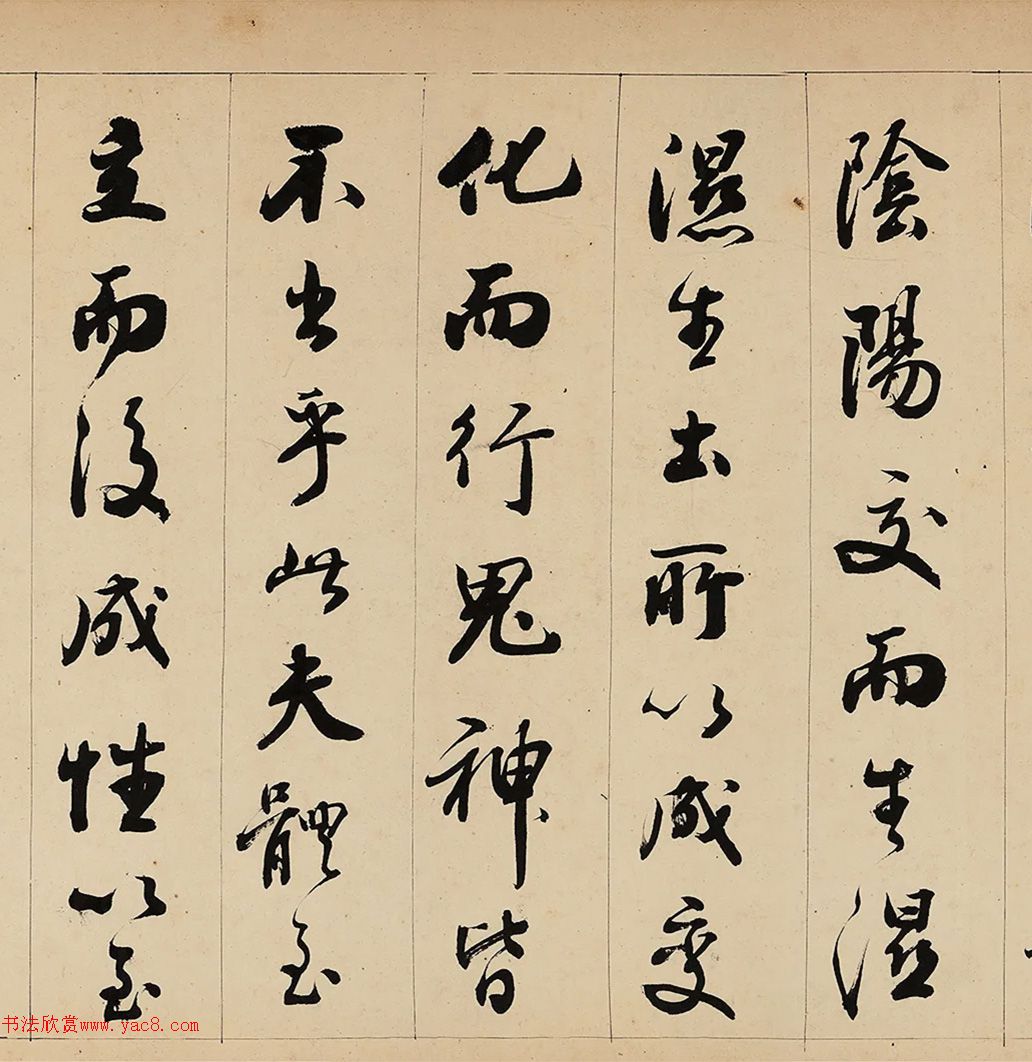 陰陽交而生湿
濕生土所以成变
化而行鬼神皆
不出乎此夫體至
立而後成性以至
书法欣赏www.yac8.com